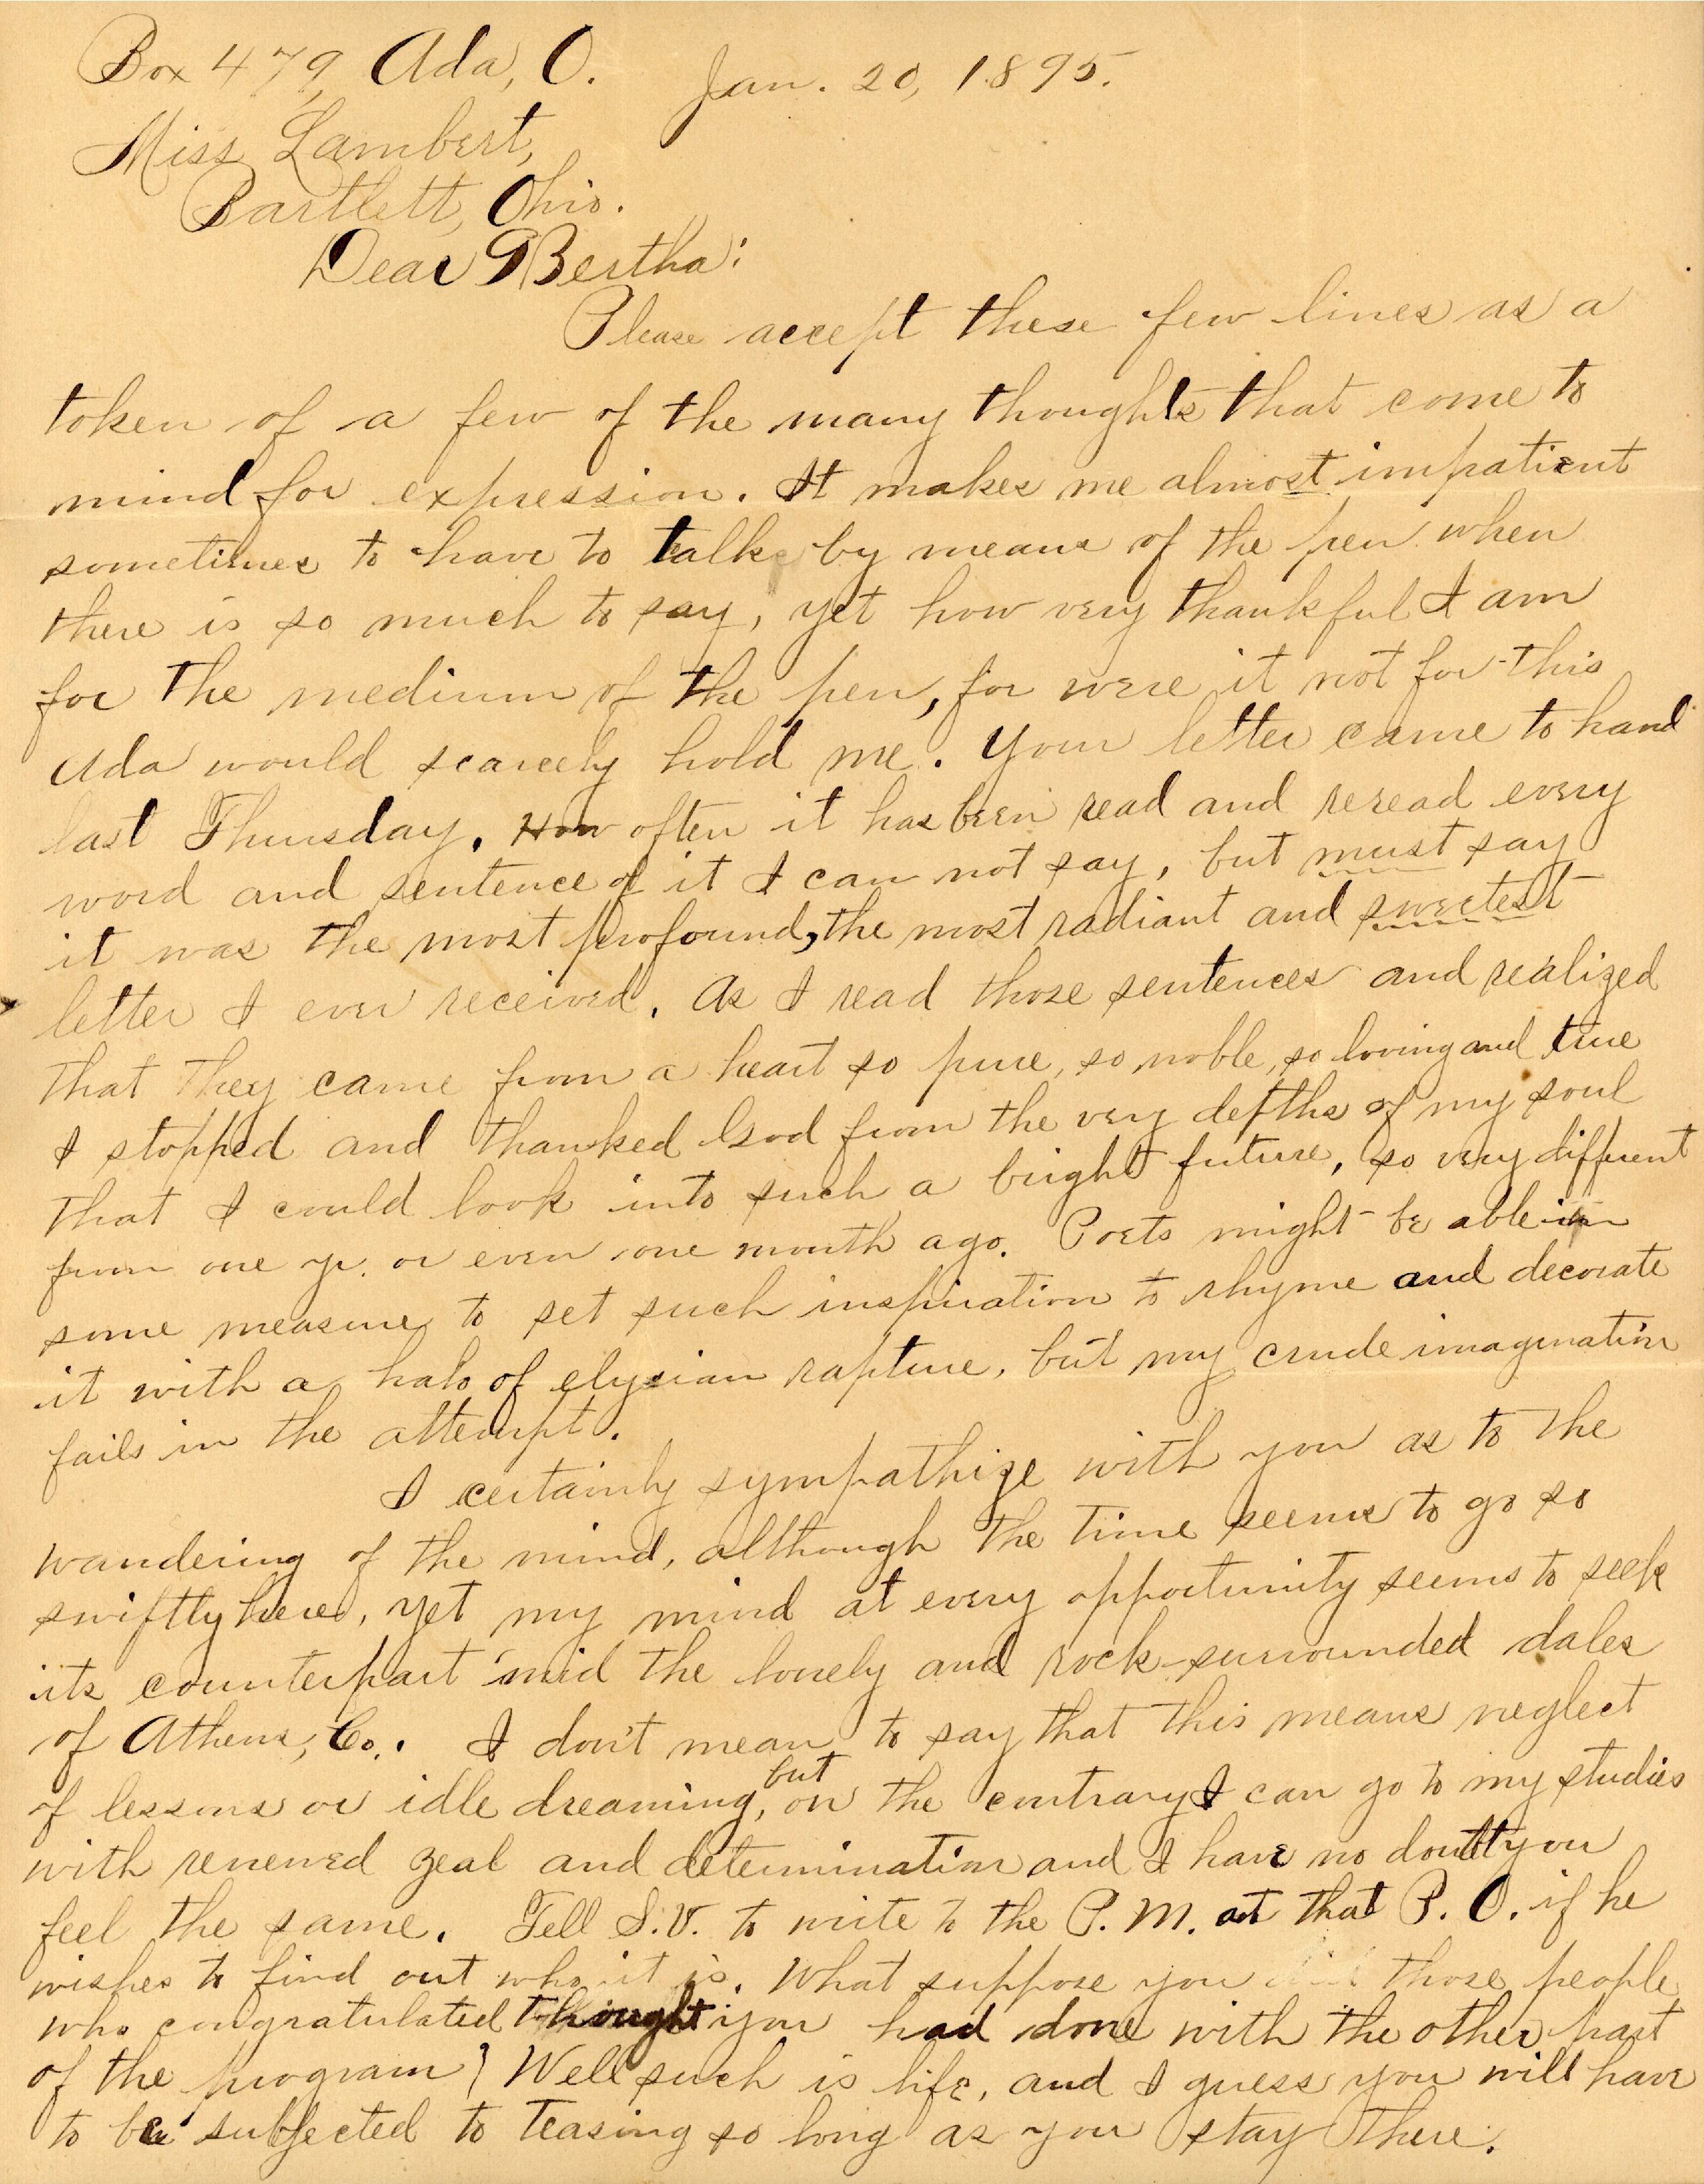 Box 479, Ada, O. Jan. 20, 1895.
Miss Lambert,
Bartlett, Ohio.
Dear Bertha:
Please accept these few lines as a
token of a few of the many thoughts that come to
mind for expression. It makes me almost impatient
sometimes to have to talk by means of the pen when
there is so much to say, yet how very thankful I am
for the medium of the pen, for were it not for this
Ada would scarcely hold me. Your letter came to hand
last Thursday. How often it has been read and reread every
word and sentence of it I can not say, but must say
it was the most profound, the most radiant and sweetest
letter I ever received. As I read those sentences and realized
that they came from a heart so pure, so noble, so loving and true
I stopped and thanked God from the very depths of my soul
that I could look into such a bright future, so very different
from one yr. or even one month ago. Poets might be able in
some measure to set such inspiration to rhyme and decorate
it with a halo of elysian rapture, but my crude imagination
fails in the attempt.
I certainly sympathize with you as to the
wandering of the mind, although the time seems to go so
swiftly here, yet my mind at every opportunity seems to seek
its counterpart 'mid the lonely and rock-surrounded dales
of Athens, Co.. I don't mean to say that this means neglect
of lessons or idle dreaming, but on the contrary I can go to my studies
with renewed zeal and determination and I have no doubt you
feel the same. Tell S.V. to write to the P.M. at that P.O. if he
wishes to find out who it is. What suppose you those people
who congratulated thought you had done with the other part
of the program? Well such is life, and I guess you will have
to be subjected to teasing so long as you stay there.